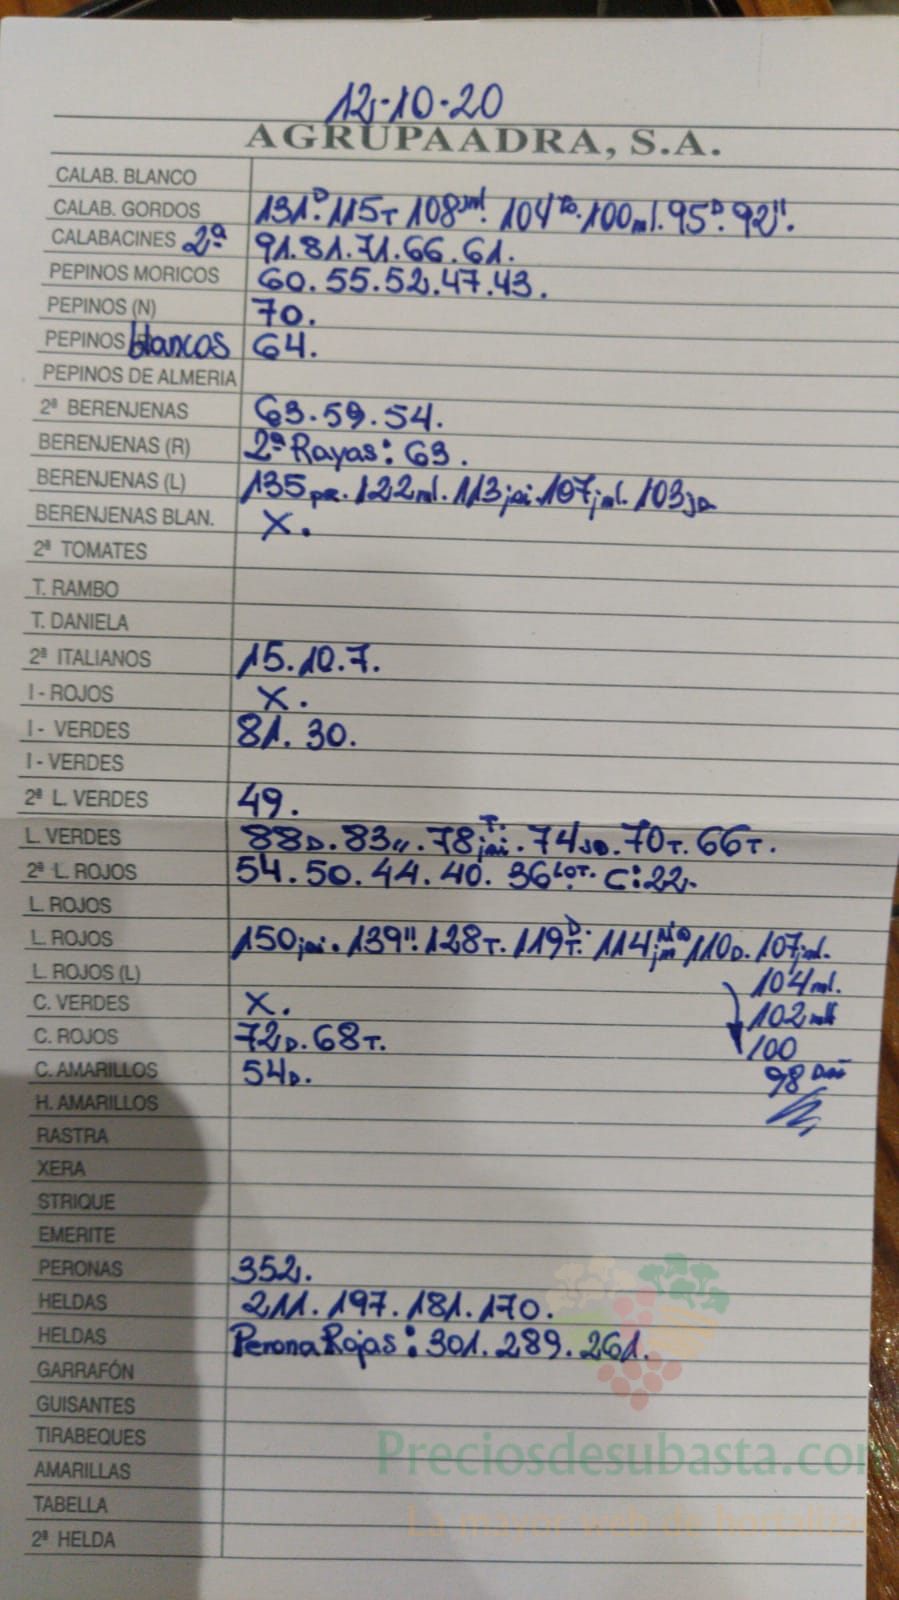 12-10-20
AGRUPAADRA, S.A.
CALAB. BLANCO
CALAB. GORDOS 131D. 115T 108jml. 104To. 100ml. 95D. 92".
CALABACINES 2ª 91. 81. 71. 66. 61.
PEPINOS MORICOS 60. 55. 52. 47. 43.
PEPINOS (N) 70.
PEPINOS blancos 64.
PEPINOS DE ALMERIA
2ª BERENJENAS 63. 59. 54.
BERENJENAS (R) 2ª Rayas: 63.
BERENJENAS (L) 135 122ml. 113joi. 107jml. 103
BERENJENAS BLAN. X.
2ª TOMATES
T. RAMBO
T. DANIELA
2ª ITALIANOS 15. 10. 7.
I - ROJOS X.
I - VERDES 81. 30.
I - VERDES
2ª L. VERDES 49.
L. VERDES 88D. 83". 78joi T. 74JD. 70T. 66T.
2ª L. ROJOS 54. 50. 44. 40. 36LOT. C: 22.
L. ROJOS
L. ROJOS 150joi. 139". 128T. 119T.D. 114 110D. 107jml.
L. ROJOS (L) 104ml.
C. VERDES X. 102
C. ROJOS 72D. 68T. 100
C. AMARILLOS 54D. 98
H. AMARILLOS
RASTRA
XERA
STRIQUE
EMERITE
PERONAS 352.
HELDAS 211. 197. 181. 170.
HELDAS Perona Rojas: 301. 289. 261.
GARRAFÓN
GUISANTES
TIRABEQUES
Preciosdesubasta.com
AMARILLAS
TABELLA
La mayor web de hortalizas
2ª HELDA